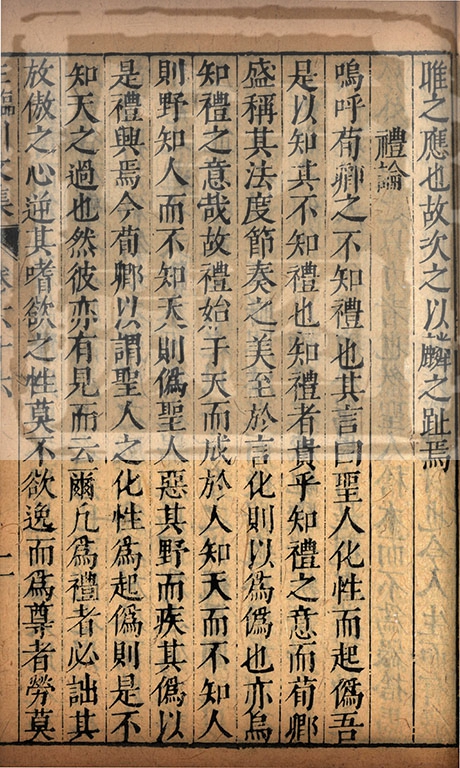 雎之應也故次之以麟之趾焉
禮論
嗚呼荀卿之不知禮也其言曰聖人化性而起僞吾
是以知其不知禮也知禮者貴乎知禮之意而荀卿
盛稱其法度節奏之美至於言化則以爲僞也亦烏
知禮之意哉故禮始于天而成於人知天而不知人
則野知人而不知天則僞聖人惡其野而疾其僞以
是禮興焉今荀卿以謂聖人之化性爲起僞則是不
知天之過也然彼亦有見而云爾凡爲禮者必詘其
放傲之心逆其嗜欲之性莫不欲逸而爲尊者勞莫
王臨川文集 卷六十六